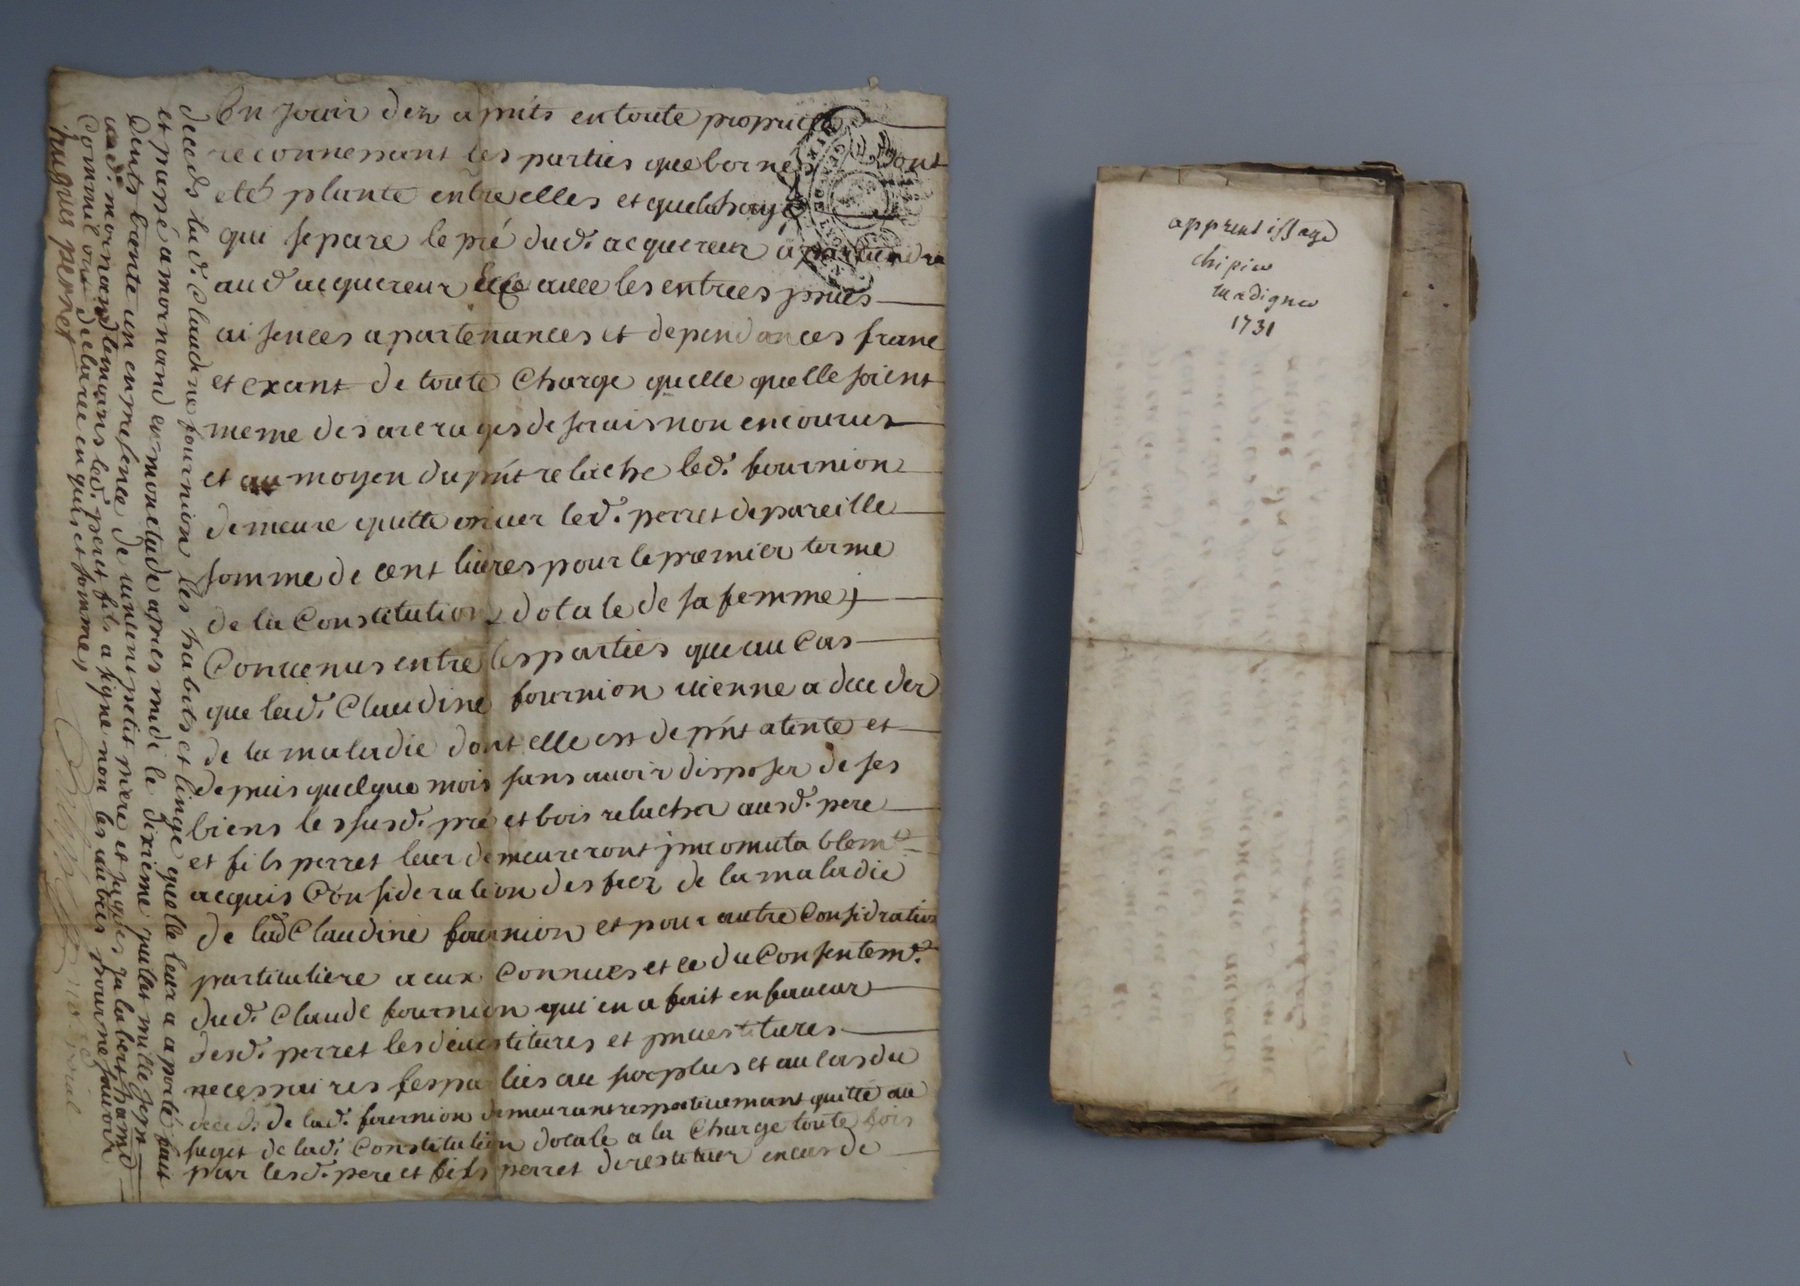 En jouir dez a pnts en toute propriete
reconnessant les parties que bornes sont
eté plante entre elles et que la haye
qui separe le pré dud. acquereur apartiendra
aud acquereur avec les entrees prises
aisences apartenances et dependances franc
et exant de toute Charge quelle quelle soient
meme des arerages de servis non encourus
et au moyen du pnt relache led. fournion
demeure quitte enver led. perret de pareille
somme de cent livres pour le premier terme
de la Constitution dotale de sa femme
Convenus entre les parties que au Cas
que lad. Claudine fournion vienne a deceder
de la maladie dont elle est de pnt atente et
depuis quelque mois sans avoir disposer de ses
biens les susd. pré et bois relacher ausd. pere
et fils perret leur demeureront jncomutablemt
acquis Consideration des de la maladie
de lad Claudine fournion et pour autre Considration
particuliere a eux Connues et ce du Consentemt.
dud. Claude fournion qui en a fait en faveur
desd. perret les devestitures et jnvestitures
necessaires au sorplus et au Cas du
deceds de lad. fournion demeurant respectivemant quitte au
suget de lad. Constitution dotale a la Charge toute fois
par lesd. pere et fils perret de restituer en cas de
deceds lad. Claudine fournion les habits et linge quelle leur a aporté fait
et passé a mornand en non etude apres midi le dixieme juillet mille sept
cents trante un en presence de vincent petit pierre et jaques jalabert
mornand temoins led. peret fils a signé non les autres pour ne savoir
Comme il ont declaree enquis et sommes
hugues perret
apprentissage
chipier
madigner
1731